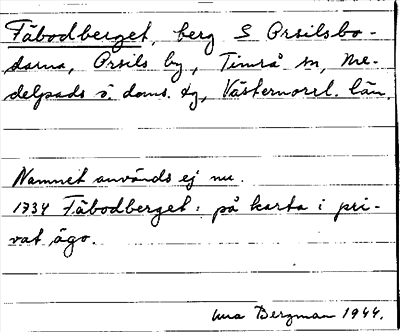 Fäbodberget, berg S Orsilsbo-
darna, Orsils by, Timrå sn, Me-
delpads ö. doms. tg, Västernorrl. län.
Namnet används ej nu.
1734 Fäbodberget: på karta i pri-
vat ägo.
Bergman 1944.